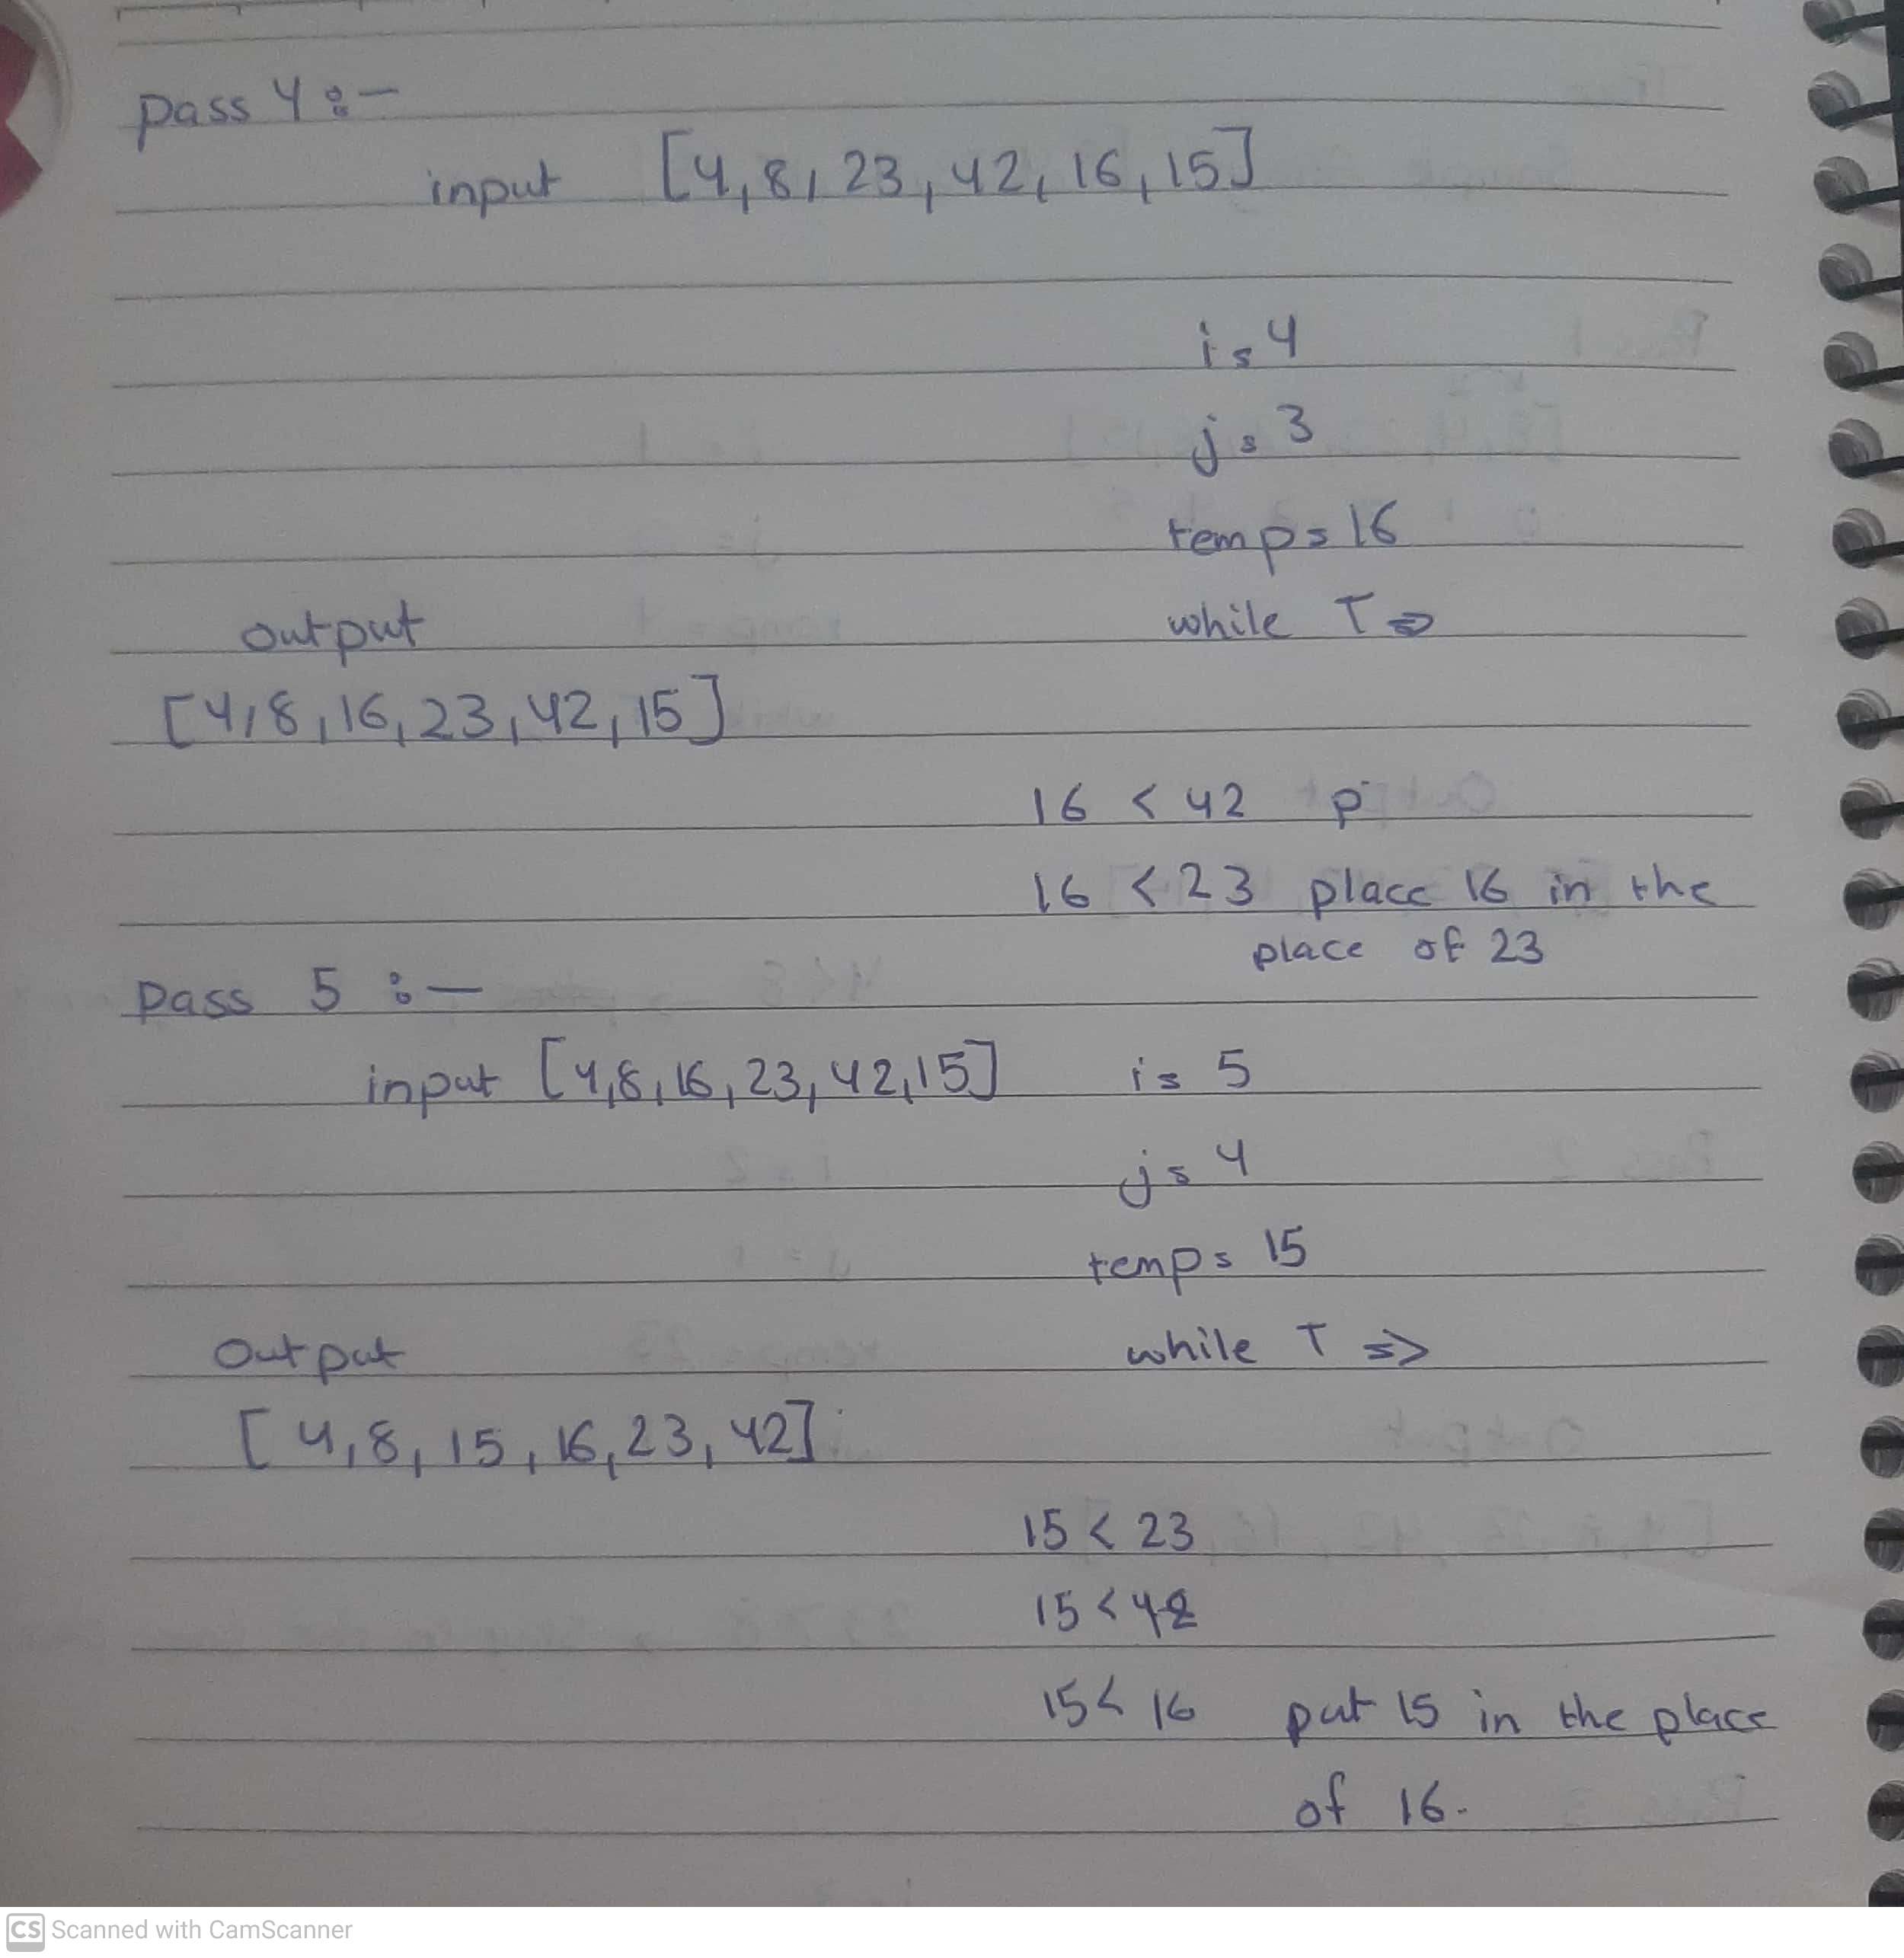 Pass 4 :-
input [4, 8, 23, 42, 16, 15]
i = 4
j = 3
temp = 16
output while T =>
[4, 8, 16, 23, 42, 15]
16 < 42 p
16 < 23 place 16 in the
place of 23
Pass 5 :-
input [4, 8, 16, 23, 42, 15] i = 5
j = 4
temp = 15
Output while T =>
[4, 8, 15, 16, 23, 42]
15 < 23
15 < 42
15 < 16 put 15 in the place
of 16.
CS Scanned with CamScanner